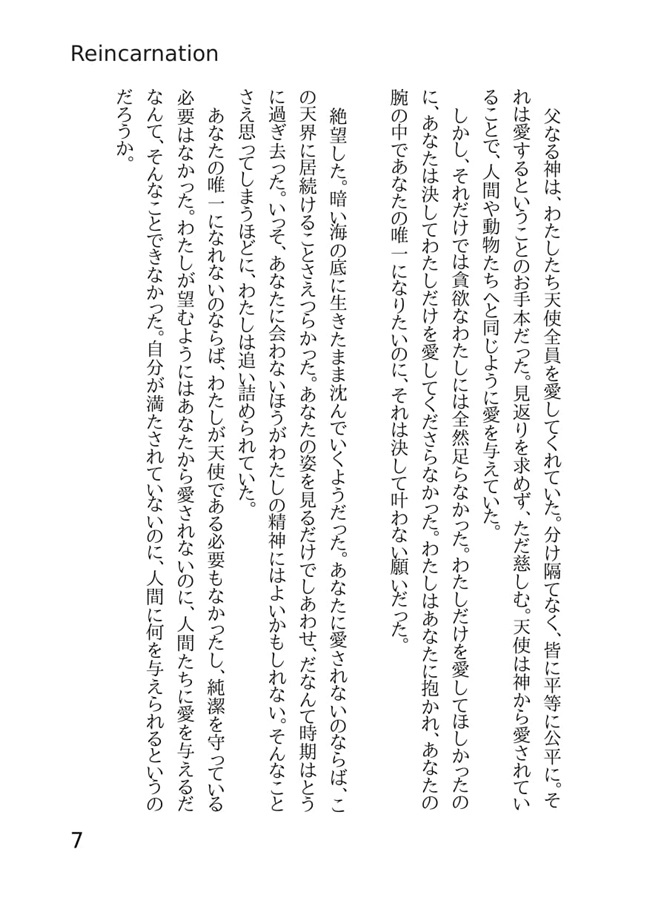 Reincarnation
父なる神は、わたしたち天使全員を愛してくれていた。分け隔てなく、皆に平等に公平に。そ
れは愛するということのお手本だった。見返りを求めず、ただ慈しむ。天使は神から愛されてい
ることで、人間や動物たちへと同じように愛を与えていた。
しかし、それだけでは貪欲なわたしには全然足らなかった。わたしだけを愛してほしかったの
に、あなたは決してわたしだけを愛してくださらなかった。わたしはあなたに抱かれ、あなたの
腕の中であなたの唯一になりたいのに、それは決して叶わない願いだった。
絶望した。暗い海の底に生きたまま沈んでいくようだった。あなたに愛されないのならば、こ
の天界に居続けることさえつらかった。あなたの姿を見るだけでしあわせ、だなんて時期はとう
に過ぎ去った。いっそ、あなたに会わないほうがわたしの精神にはよいかもしれない。そんなこと
さえ思ってしまうほどに、わたしは追い詰められていた。
あなたの唯一になれないのならば、わたしが天使である必要もなかったし、純潔を守っている
必要はなかった。わたしが望むようにはあなたから愛されないのに、人間たちに愛を与えるだ
なんて、そんなことできなかった。自分が満たされていないのに、人間に何を与えられるというの
だろうか。
7